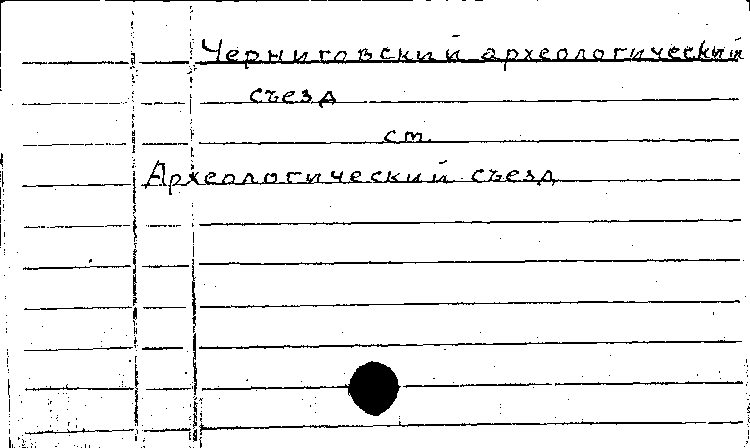 Черниговский археологический
съезд
см.
Археологический съезд